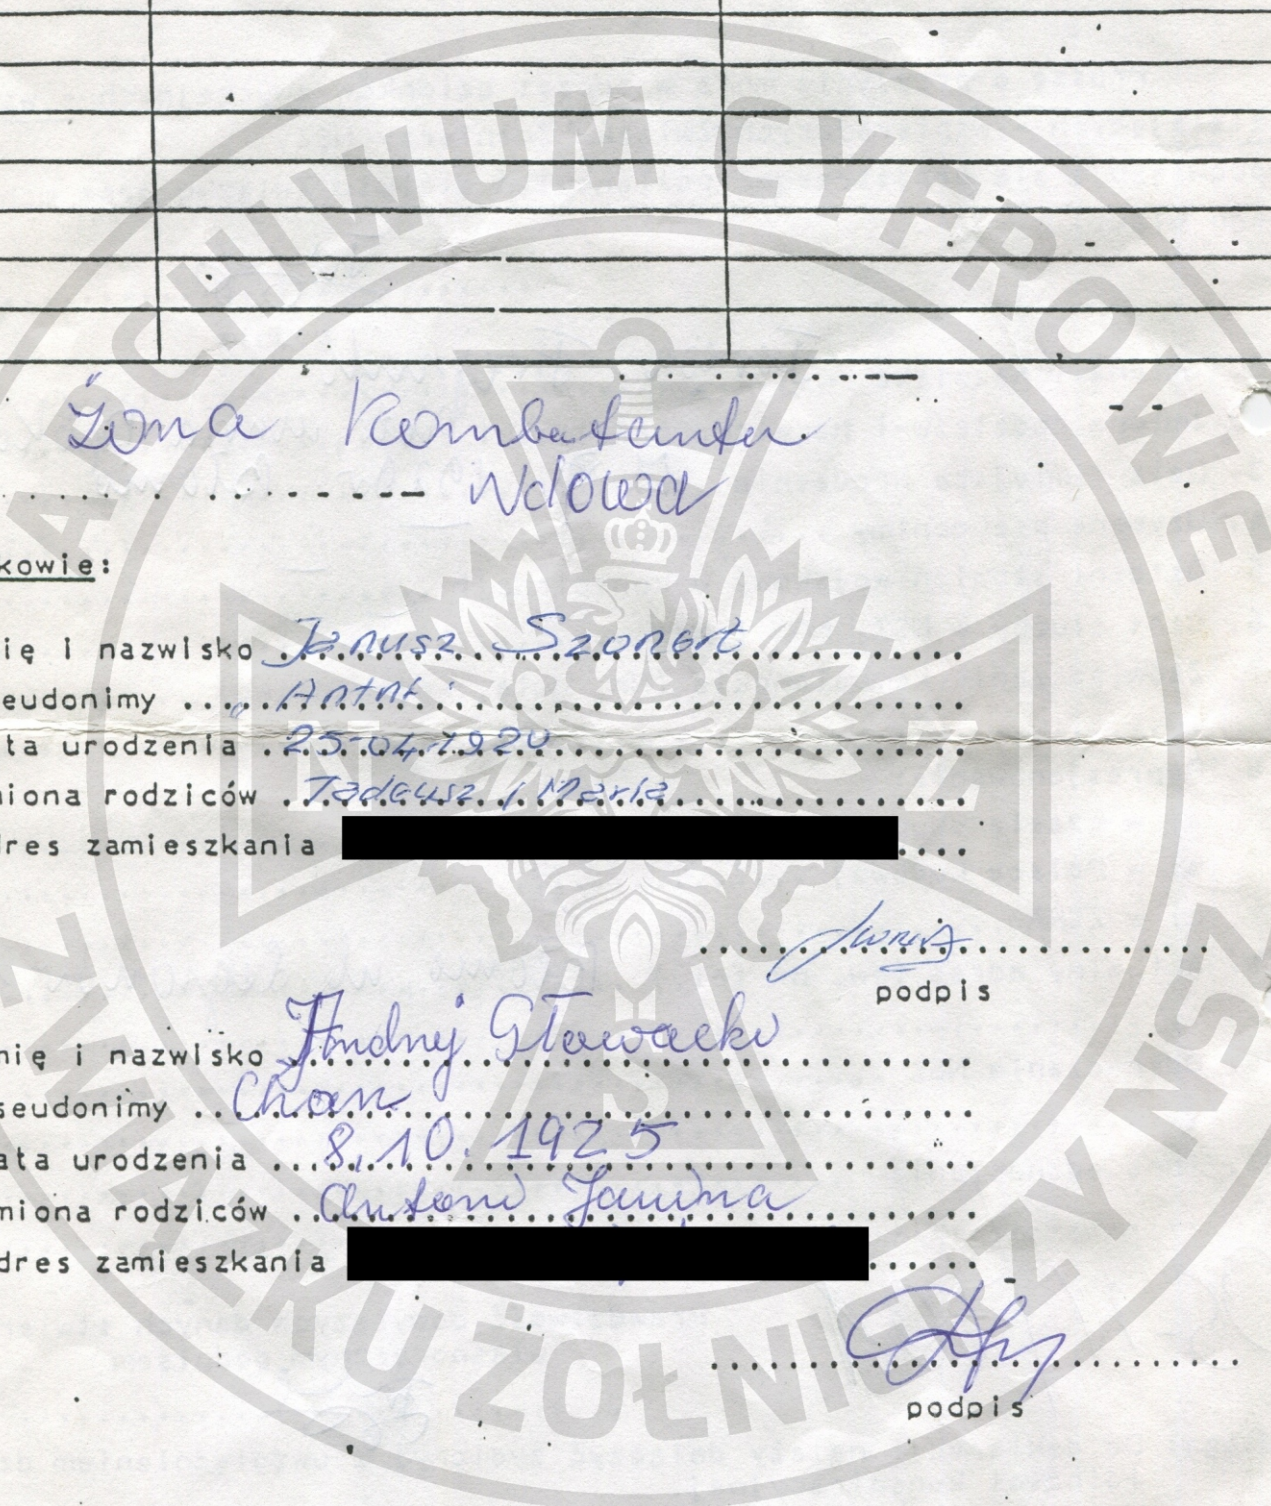 Żona Kombatanta
Wdowa
kowie:
ię i nazwisko Janusz Szonert
eudonimy "Antni
ta urodzenia 25-04-1920
niona rodziców Tadeusz i Maria
dres zamieszkania
podpis
nię i nazwisko Andrzej Głowacki
seudonimy Chan
ata urodzenia 8.10.1925
miona rodziców Antoni Janina
dres zamieszkania
podpis
ARCHIWUM CYFROWE
ZWIĄZKU ŻOŁNIERZY NSZ
N Z
S